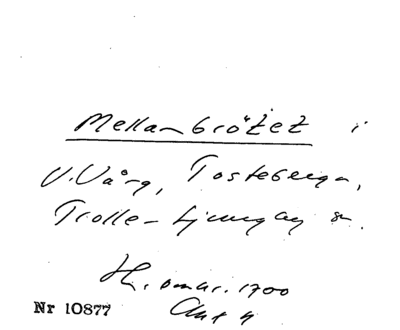 Mellanbrötet i
V. Vång, Tosteberga,
Trolle-Ljungby sn.
omkr. 1700
Nr 10877